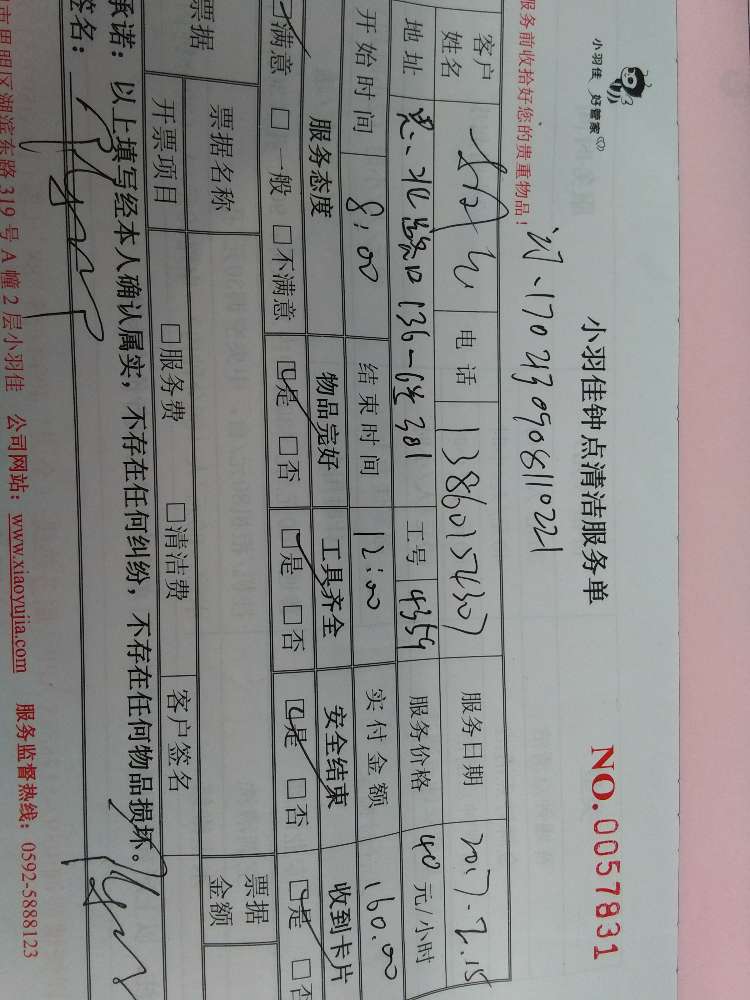 小羽佳 好管家
小羽佳钟点清洁服务单
NO.0057831
服务前收拾好您的贵重物品！
1702130908110221
客户姓名 电话 13860157430 服务日期 2017.2.15
地址 136-6 301 工号 4359 服务价格 40 元/小时
开始时间 8:00 结束时间 12:00 实付金额 160.00
服务态度 物品完好 工具齐全 安全结束 收到卡片
□满意 □一般 □不满意 □是 □否 □是 □否 □是 □否 □是 □否
票据 票据名称 票据金额
开票项目 □服务费 □清洁费 客户签名
承诺：以上填写经本人确认属实，不存在任何纠纷，不存在任何物品损坏。
签名：
市思明区湖滨东路 319 号 A 幢 2 层小羽佳 公司网站：www.xiaoyujia.com 服务监督热线：0592-5888123